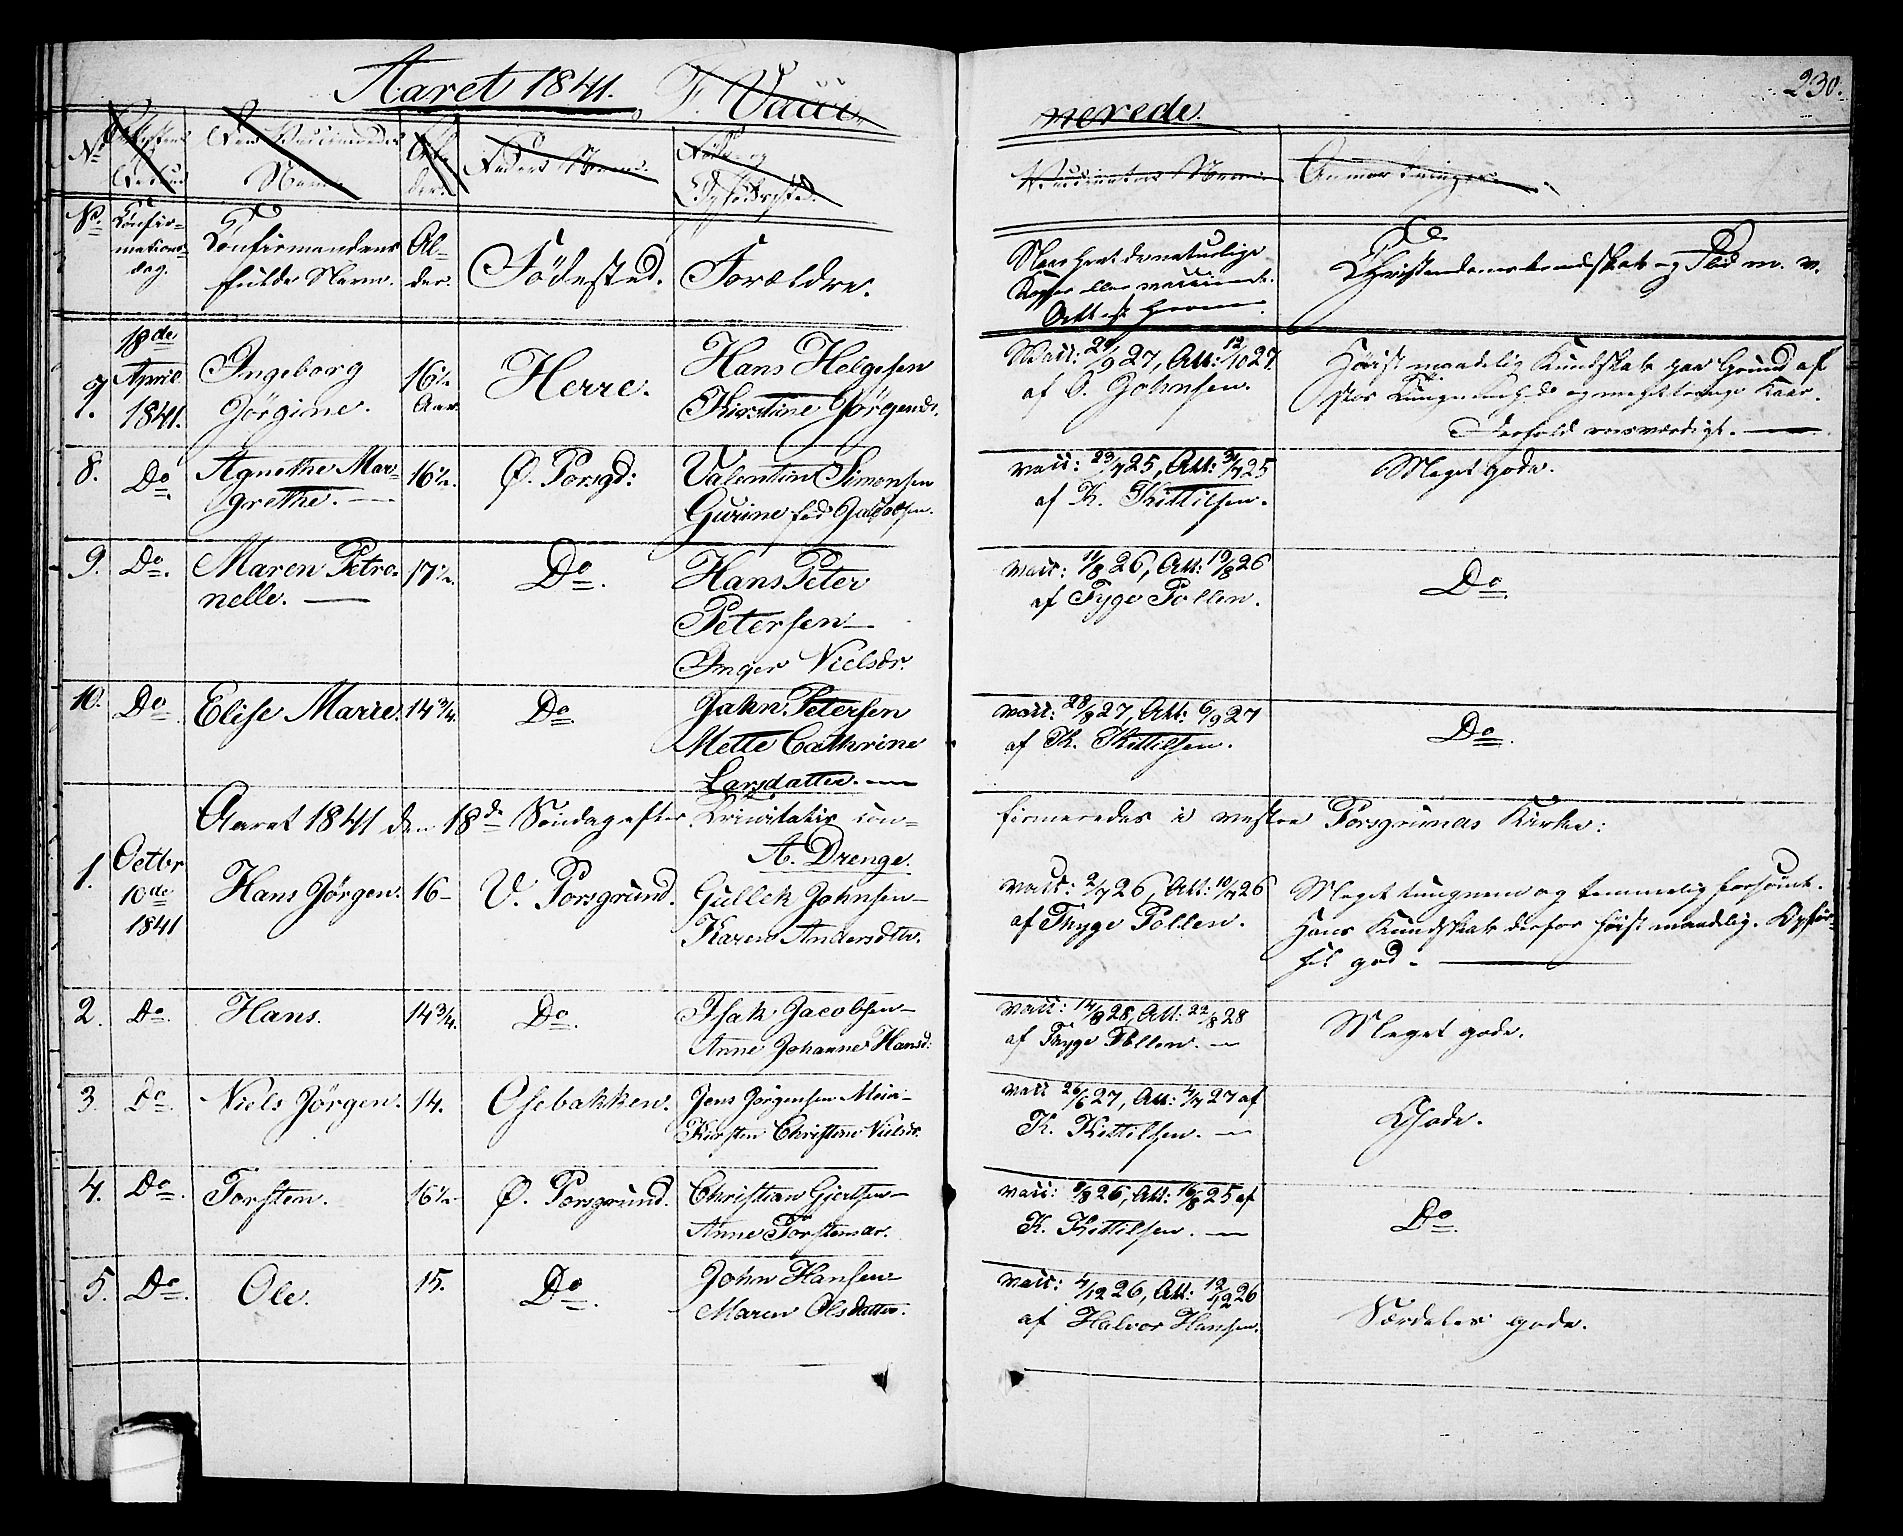 Aaret 1841. F. Vacci-
nerede.
230.
No
Den Vaccineredes
Navn
Al-
der.
Faders Navn.
Føde og
Opholdssted.
Vaccinators Navn
Anmærkninger.
No.
Confir-
mations-
dag.
Confirmandens
fulde Navn.
Al-
der.
Födested.
Forældre.
Naar havt de naturlige
Kopper eller vaccineret.
Attest herom.
Christendomskundskab og Flid m. v.
7.
18de
April
1841.
Ingeborg
Jörgine.
16½
Aar
Herre.
Hans Helgesen
Kirstine Jörgensd.
Vacc: 29/9 27, Att: 12/10 27
af S. Johnsen.
Høist maadelig Kundskab paa Grund af
stor Tungnemhed og meget trange Kaar.
Forhold roesværdigt.
8.
Do
Agnethe Mar-
grethe.
16½.
Ø. Porsgd:
Valentin Simonsen
Gurine fød Jacobsen.
vacc: 23/7 25, Att: 31/7 25
af K. Kittilsen.
Meget gode.
9.
Do.
Maren Petro-
nelle.
17½.
Do.
Hans Peter
Petersen
Inger Nielsdr.
vacc: 11/8 26, Att: 19/8 26
af Tyge Pollen.
Do.
10.
Do.
Elise Marie.
14¾.
Do
Jahn Petersen
Mette Cathrine
Larsdatter.
vacc: 28/8 27, Att: 6/9 27
af K. Kittilsen.
Do.
Aaret 1841 den 18de Söndag efter Trinitatis con-
firmeredes i vestre Porsgrunds Kirke:
A. Drenge.
1.
Octbr
10de
1841
Hans Jörgen.
16
V. Porsgrund.
Gullek Johnsen
Karen Andersdtr.
vacc: 2/7 26, Att: 10/7 26
af Thyge Pollen.
Meget tungnem og temmelig forsömt.
Hans Kundskab derfor høist maadelig. Opför-
sel god.
2.
Do.
Hans.
14¾.
Do.
Isak Jacobsen
Anne Johanne Hansd:
vacc: 14/8 28, Att: 22/8 28
af Thyge Pollen.
Meget gode.
3.
Do.
Niels Jörgen.
14.
Osebakken.
Jens Jörgensen Mein
Kirsten Christine Nielsdr.
vacc 26/6 27, Att: 4/7 27 af
K. Kittilsen.
Gode.
4.
Do.
Torsten.
16½
Ø. Porsgrund.
Christian Gjertsen
Anne Torstensdr.
vacc: 8/8 26, Att: 16/8 25 af
K. Kittilsen.
Do.
5.
Do.
Ole.
15.
Do.
John Hansen
Maren Olsdatter.
vacc: 4/12 26, Att: 12/12 26
af Halvor Hansen.
Særdeles gode.